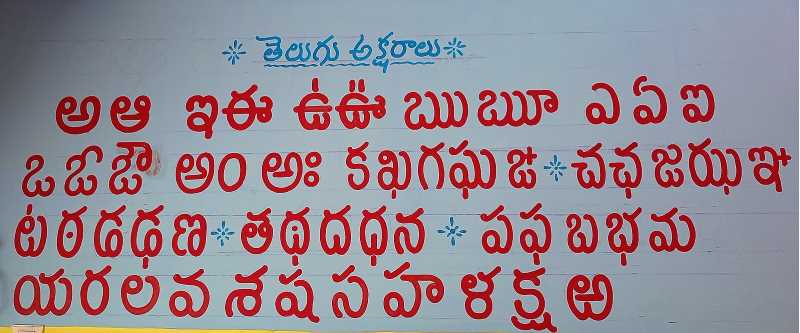 తెలుగు అక్షరాలు
అ ఆ ఇ ఈ ఉ ఊ ఋ ౠ ఎ ఏ ఐ
ఒ ఓ ఔ అం అః క ఖ గ ఘ ఙ చ ఛ జ ఝ ఞ
ట ఠ డ ఢ ణ త థ ద ధ న ప ఫ బ భ మ
య ర ల వ శ ష స హ ళ క్ష ఱ